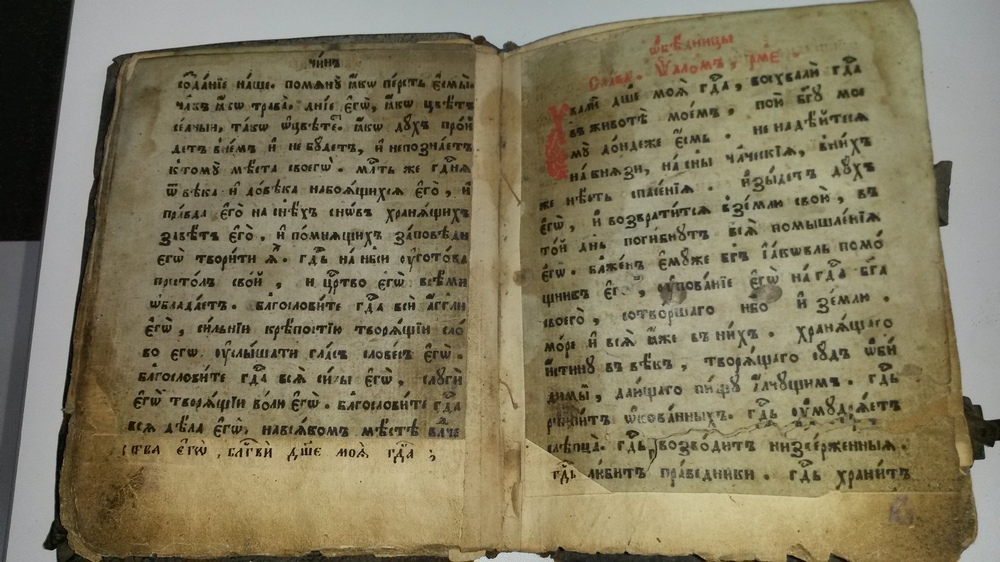 чи́нъ
созда́нїе на́ше. помѧнꙋ̀ ꙗ҆́кѡ пе́рсть є҆смы̀.
чл҃къ ꙗ҆́кѡ трава̀. дні́е є҆гѡ̀, ꙗ҆́кѡ цвѣ́тъ
се́лныи, та́кѡ ѿцвѣте́тъ. ꙗ҆́кѡ дꙋ́хъ про́и
детъ в не́мъ и҆ не бꙋ́детъ, и҆ непозна́етъ
ктомꙋ̀ мѣ́ста своегѡ̀. мл҇ть же гдⷭ҇нѧ
ѿ вѣ́ка и҆ до́вѣка набоѧ́щихсѧ є҆гѡ̀, и҆
пра́вда є҆гѡ̀ на сн҃ѣхъ сн҃ѡвъ хранѧ́щихъ
завѣ́тъ є҆гѡ̀, и҆ по́мнѧщихъ за́повѣди
є҆гѡ̀ твори́ти ѧ҆̀. гдⷭ҇ь на нб҃си ᲂу҆гото́ва
престо́лъ сво́й, и҆ црⷭ҇тво є҆гѡ̀ всѣ́ми
ѡ҆блада́етъ. благослови́те гдⷭ҇а всѝ а҆́гг҃ли
є҆гѡ̀, си́льнїи крѣ́постїю творѧ́щїи сло́
во є҆гѡ̀ ᲂу҆слы́шати гла́съ слове́съ є҆гѡ̀.
благослови́те гдⷭ҇а всѧ̑ си́лы є҆гѡ̀, слꙋги̑
є҆гѡ̀ творѧ́щїи во́лю є҆гѡ̀. благослови́те гдⷭ҇а
всѧ̑ дѣ́ла є҆гѡ̀, навсѧ́комъ мѣ́стѣ влⷣче
ства є҆гѡ̀, блг҃ви́ дш҃е моѧ̀ гдⷭ҇а;
ѻ҆бѣ́дницы
Сла́ва. Ѱало́мъ, рм҃е.
Хвалѝ дш҃е моѧ̀ гдⷭ҇а, восхвалю̀ гдⷭ҇а
въ животѣ̀ мое́мъ, пою̀ бг҃ꙋ мое
мꙋ̀ до́ндеже є҆́смь. не наде́йтесѧ
на кнѧ́зи, на сн҃ы чл҃ческїѧ, в ни́хъ
же нѣ́сть спасе́нїѧ. и҆зы́детъ дꙋ́хъ
є҆гѡ̀, и҆ возврати́тсѧ в зе́млю свою̀, въ
то́й дн҃ь поги́бнꙋтъ всѧ̑ помышле́нїѧ
є҆гѡ̀. бл҃же́нъ є҆мꙋ́же бг҃ъ і҆а́кѡвль помо́
щникъ є҆гѡ̀, ᲂу҆пова́нїе є҆гѡ̀ на гдⷭ҇а бг҃а
своегѡ̀, сотво́ршаго нб҃о и҆ зе́млю.
мо́ре и҆ всѧ̑ ꙗ҆́же въ ни́хъ. хранѧ́щаго
и҆́стинꙋ въ вѣ́къ, творѧ́щаго сꙋ́дъ ѡ҆би́
димы̑, даю́щаго пи́щꙋ а҆́лчꙋщимъ. гдⷭ҇ь
рѣши́тъ ѡ҆ко́ванныхъ. гдⷭ҇ь ᲂу҆мꙋдрѧ́етъ
слѣпца̀. гдⷭ҇ь возво́дитъ низве́рженныѧ.
гдⷭ҇ь лю́битъ пра́ведники. гдⷭ҇ь храни́тъ